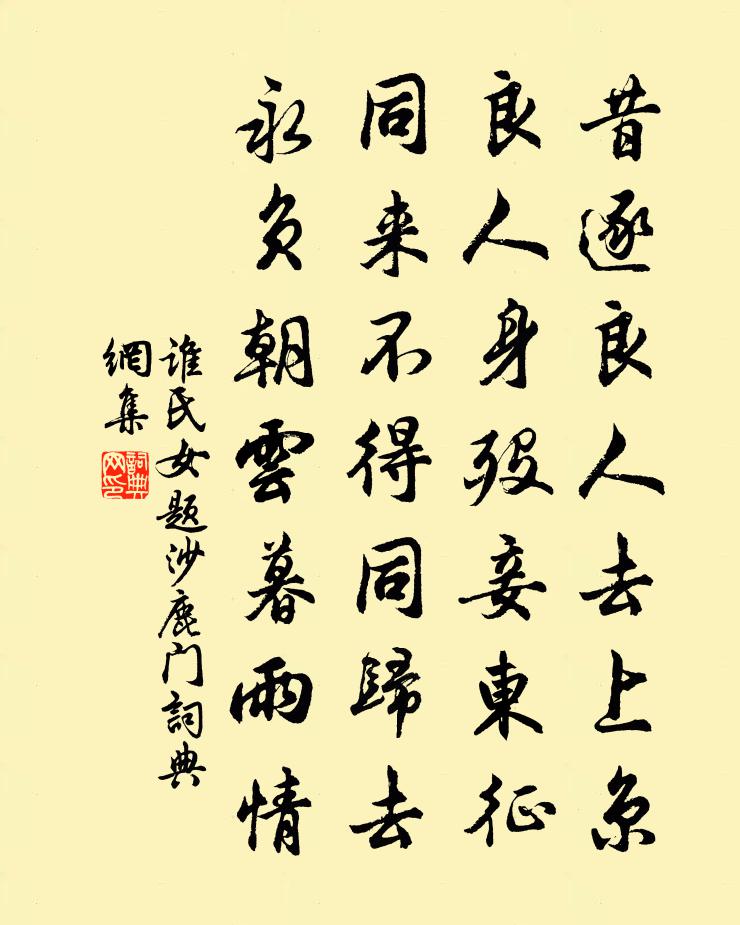 昔逐良人去上京
良人身歿妾東征
同来不得同歸去
永負朝雲暮雨情
誰氏女題沙鹿門詞典
網集
詞典網印